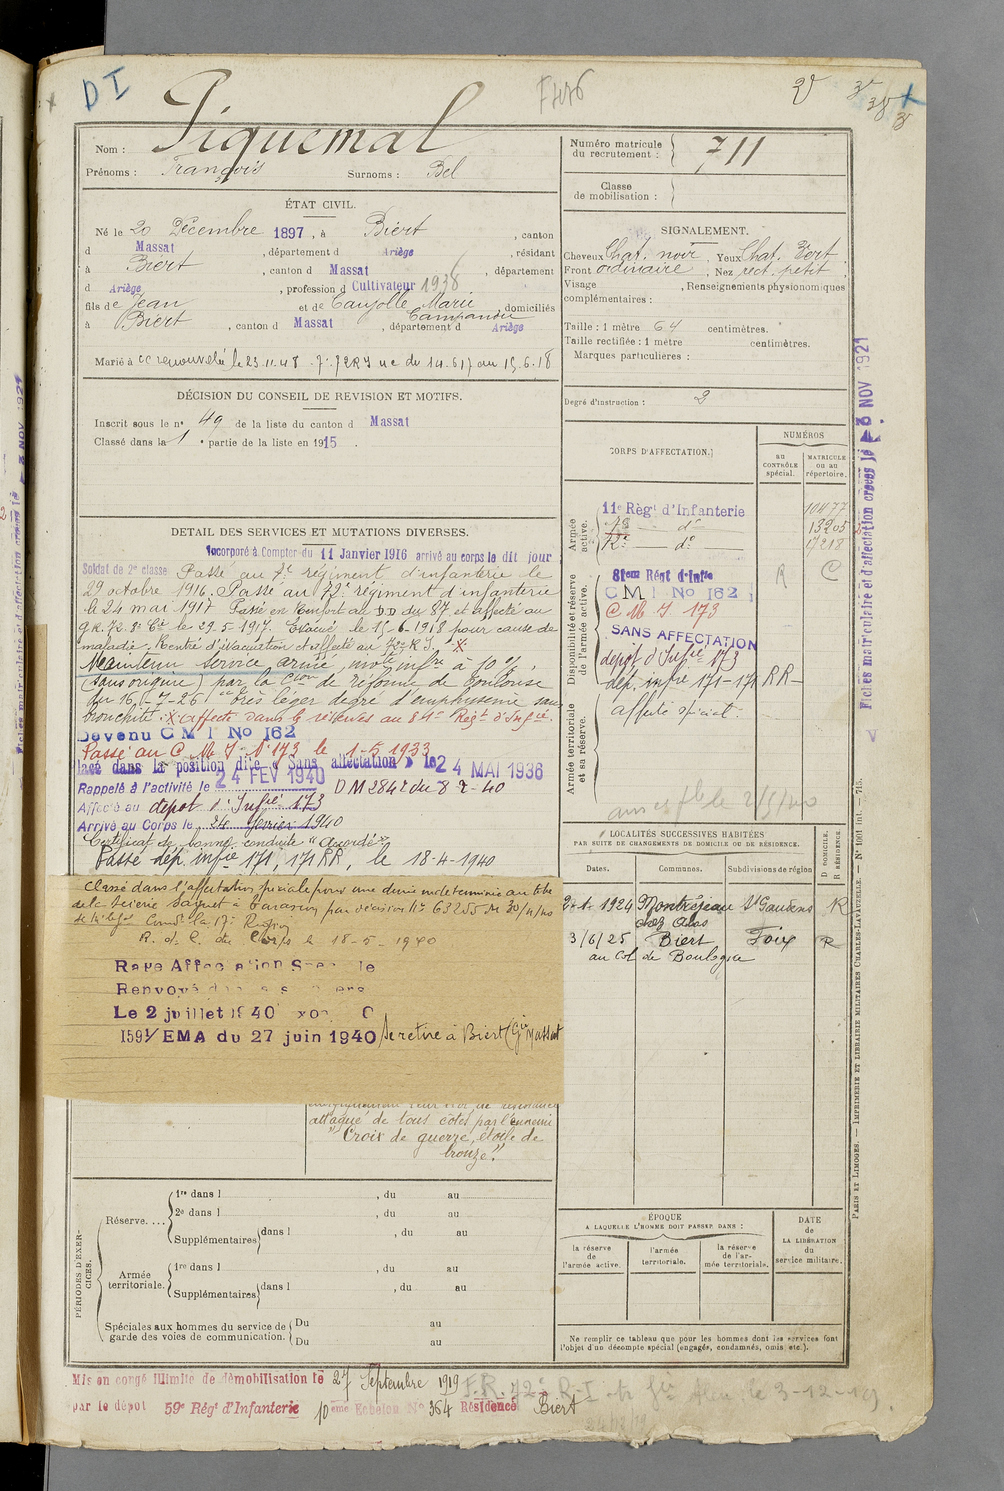 D I
Piquemal
Nom :
Prénoms : François Surnoms : Bel
ÉTAT CIVIL.
Né le 20 Décembre 1897, à Biert, canton
d Massat, département d Ariège, résidant
à Biert, canton d Massat, département
d Ariège, profession d Cultivateur 1938
fils de Jean et de Caujolle Marie domiciliés
Campandu
à Biert, canton d Massat, département d Ariège
Marié à
DÉCISION DU CONSEIL DE REVISION ET MOTIFS.
Inscrit sous le n° 49 de la liste du canton d Massat
Classé dans la 1 e partie de la liste en 1915.
DETAIL DES SERVICES ET MUTATIONS DIVERSES.
Incorporé à Compter du 11 Janvier 1916 arrivé au corps le dit jour
Soldat de 2e classe Passé au 7e régiment d'infanterie le
29 octobre 1916. Passé au 72e régiment d'infanterie
le 24 mai 1917 Passé en renfort au D.D du 87 et affecté au
9 R. 72. 8e Cie le 29.5.1917. Evacué le 15-6-1918 pour cause de
maladie. Rentré d'évacuation et affecté au 72e R I. X
Maintenu service armé, inapte infie à 10 %.
(sans origine) par la Cion de réforme de Toulouse
du 16-7-26 très léger degré d'emphysème sur
bronchite. X Affecté dans la réserve au 81e Régt d'Infie.
Devenu C M I No 162
Passé au C. M. I. N° 173 le 1-5 1933
lacé dans la position dite « Sans affectation » le 24 MAI 1936
Rappelé à l'activité le 24 FEV 1940 D M 2842 du 8 2-40
Affecté au dépot d'Infie 173
Arrivé au Corps le 24 février 1940
Certificat de bonne conduite "Accordé"
Passé dép. infie 171, 171 RR, le 18-4-1940
Classé dans l'affectation spéciale pour une durée indéterminée au titre
de la Scierie Saquet à Tarascon par décision N° 63255 du 30/4/40
R. d. C. du Corps le 18-5-1940
Renvoyé
Le 2 juillet 1940
1591/EMA du 27 juin 1940 Se retire à Biert (Gie Massat
attaqué de tous côtés par l'ennemi
"Croix de guerre, étoile de
bronze".
PÉRIODES D'EXERCICES.
Réserve....
1re dans l , du au
2e dans l , du au
Supplémentaires dans l , du au
Armée territoriale.
1re dans l , du au
Supplémentaires dans l , du au
Spéciales aux hommes du service de garde des voies de communication.
Du au
Du au
Mis en congé illimité de démobilisation le 27 Septembre 1919
par le dépot 59e Régt d'Infanterie 10 eme Echelon N° 364 Résidence Biert
Numéro matricule du recrutement : 711
Classe de mobilisation :
SIGNALEMENT.
Cheveux Chat. noir, Yeux Chat. Vert.
Front ordinaire, Nez rect. petit.
Visage , Renseignements physionomiques
complémentaires :
Taille : 1 mètre 64 centimètres.
Taille rectifiée : 1 mètre centimètres.
Marques particulières :
Degré d'instruction : 2
CORPS D'AFFECTATION.
NUMÉROS
au CONTRÔLE spécial.
MATRICULE ou au répertoire.
Armée active.
11e Règt d'Infanterie 10477
d° 13205
72e d° 17218
Disponibilité et réserve de l'armée active.
81eme Régt d'Infie R C
C M I No 162
C. M. I 173
SANS AFFECTATION
dépot d'Infie 173
dép. infie 171-171 RR
affecté spécial.
Armée territoriale et sa réserve.
LOCALITÉS SUCCESSIVES HABITÉES
PAR SUITE DE CHANGEMENTS DE DOMICILE OU DE RÉSIDENCE.
Dates. Communes. Subdivisions de région D DOMICILE. R RÉSIDENCE.
2-1-1924 Montréjeau St Gaudens R
3/6/25 Biert Foix R
au Col de Boulogne
ÉPOQUE
A LAQUELLE L'HOMME DOIT PASSER DANS :
la réserve de l'armée active.
l'armée territoriale.
la réserve de l'armée territoriale.
DATE de LA LIBÉRATION du service militaire.
Ne remplir ce tableau que pour les hommes dont les services font
l'objet d'un décompte spécial (engagés, condamnés, omis etc.).
Fiches matriculaire et d'affectation creees le - 3 NOV 1921
PARIS ET LIMOGES. — IMPRIMERIE ET LIBRAIRIE MILITAIRES CHARLES-LAVAUZELLE. — N° 1001 int. — 715.